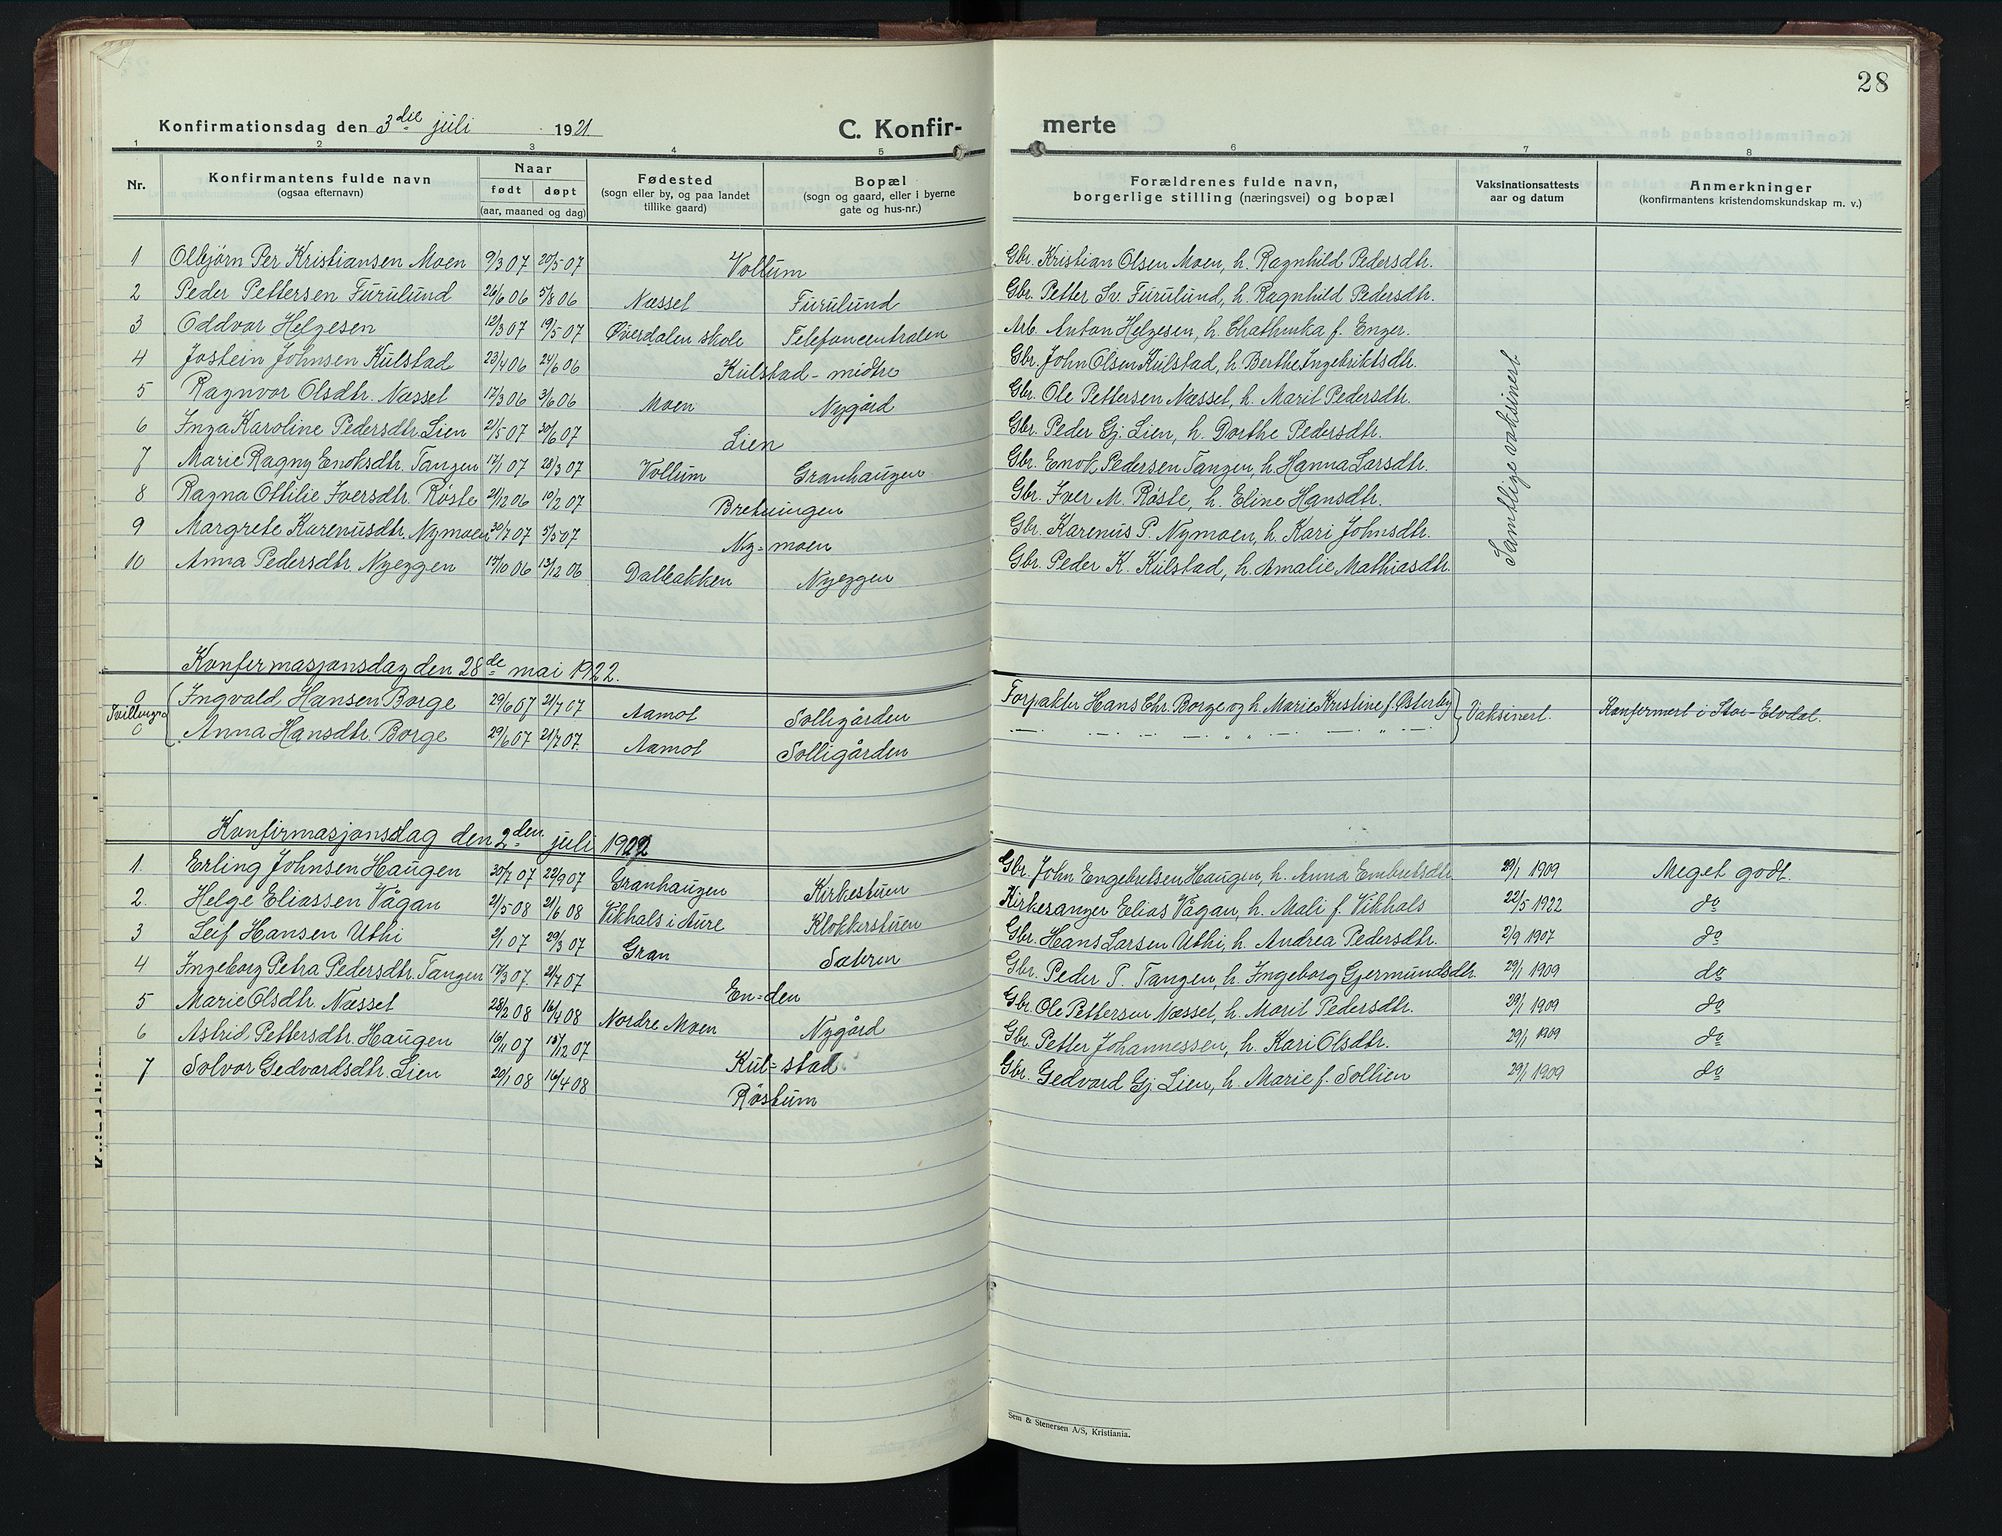 28
Konfirmationsdag den 3die juli 1921 C. Konfir- merte
1 2 3 4 5 6 7 8
Nr. Konfirmantens fulde navn (ogsaa efternavn) Naar født døpt (aar, maaned og dag) Fødested (sogn eller by, og paa landet tillike gaard) Bopæl (sogn og gaard, eller i byerne gate og hus-nr.) Forældrenes fulde navn, borgerlige stilling (næringsvei) og bopæl Vaksinationsattests aar og datum Anmerkninger (konfirmantens kristendomskundskap m. v.)
1 Olbjørn Per Kristiansen Moen 9/3 07 20/5 07 Vollum Gbr. Kristian Olsen Moen, h. Ragnhild Pedersdtr.
2 Peder Pettersen Furulund 26/6 06 5/8 06 Næsset Furulund Gbr. Petter Sv. Furulund, h. Ragnhild Pedersdtr.
3 Oddvar Helgesen 12/3 07 19/5 07 Øverdalen skole Telefoncentralen Arb. Anton Helgesen, h. Chathinka f. Enger.
4 Jostein Johnsen Kulstad 23/4 06 24/6 06 Kulstad - midtre Gbr. John Olsen Kulstad, h. Berthe Ingebriktsdtr.
5 Ragnvor Olsdtr. Næsset 17/3 06 3/6 06 Moen Nygård Gbr. Ole Pettersen Næsset, h. Marit Pedersdtr.
6 Inga Karoline Pedersdtr. Lien 21/5 07 30/6 07 Lien Gbr. Peder Gj. Lien, h. Dorthe Pedersdtr.
7 Marie Ragny Enoksdtr. Tangen 17/1 07 28/3 07 Vollum Granhaugen Gbr. Enok Pedersen Tangen, h. Hanna Larsdtr.
8 Ragna Ottilie Iversdtr. Røste 21/12 06 10/2 07 Bretningen Gbr. Iver M. Røste, h. Eline Hansdtr.
9 Margrete Karenusdtr. Nymoen 30/7 07 5/5 07 Ny-moen Gbr. Karenus P. Nymoen, h. Kari Johnsdtr.
10 Anna Pedersdtr. Nyeggen 17/10 06 13/12 06 Dalbakken Nyeggen Gbr. Peder K. Kulstad, h. Amalie Mathiasdtr.
Samtlige vaksinert.
Konfirmasjonsdag den 28de mai 1922.
Tvillinger
Ingvald Hansen Borge 29/6 07 21/7 07 Aamot Solligården Forpakter Hans Chr. Borge og h. Marie Kristine f. Østerby Vaksinert. Konfirmert i Stor-Elvdal.
Anna Hansdtr. Borge 29/6 07 21/7 07. Aamot Solligården
Konfirmasjonsdag den 2den juli 1922
1. Erling Johnsen Haugen 30/7 07 22/9 07 Granhaugen Kirkestuen Gbr. John Engebretsen Haugen, h. Anna Embretsdtr 29/1 1909 Meget godt.
2. Helge Eliassen Vågan 21/5 08 21/6 08 Vikhals i Aure Klokkerstuen Kirkesanger Elias Vågan, h. Mali f. Vikhals 22/5 1922 do
3 Leif Hansen Uthi 2/1 07 29/3 07 Gran Sætren Gbr. Hans Larsen Uthi, h. Andrea Pedersdtr. 2/9 1907 do
4 Ingeborg Petra Pedersdtr. Tangen 17/3 07. 21/7 07 En-den Gbr. Peder T. Tangen, h. Ingeborg Gjermundsdtr. 29/1 1909 do
5 Marie Olsdtr. Næsset 28/2 08 16/4 08 Nordre Moen Nygård Gbr. Ole Pettersen Næsset, h. Marit Pedersdtr. 29/1 1909 do
6 Astrid Pettersdtr. Haugen 16/11 07 15/12 07 Kul-stad Gbr. Petter Johannessen, h. Kari Olsdtr. 29/1 1909 do
7 Solvor Gedvardsdtr. Lien 20/1 08 16/4 08 Røstum Gbr. Gedvard Gj. Lien, h. Marie f. Sollien 29/1 1909 do
Sem & Stenersen A/S, Kristiania.